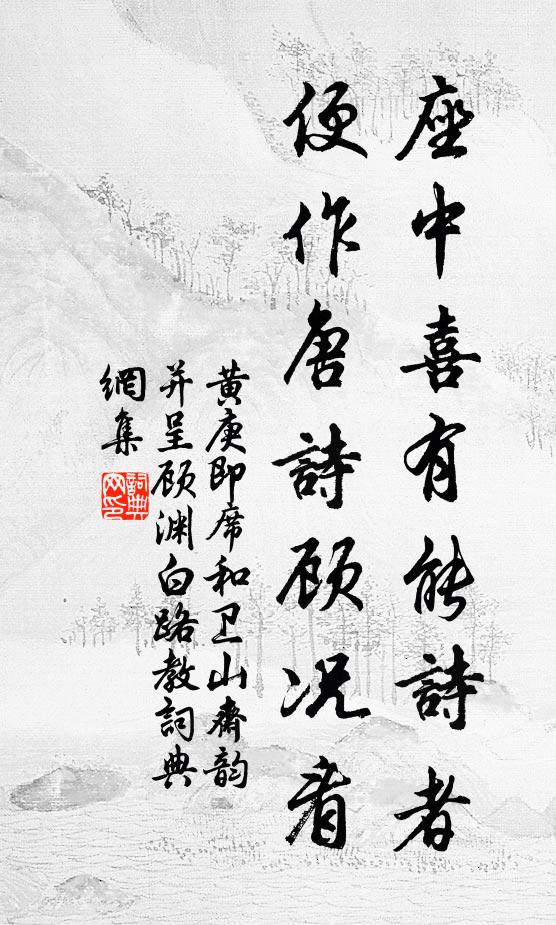 座中喜有能詩者
便作唐詩顾况看
黄庚即席和卫山齋韵
并呈顾渊白路教詞典
網集
詞典網印